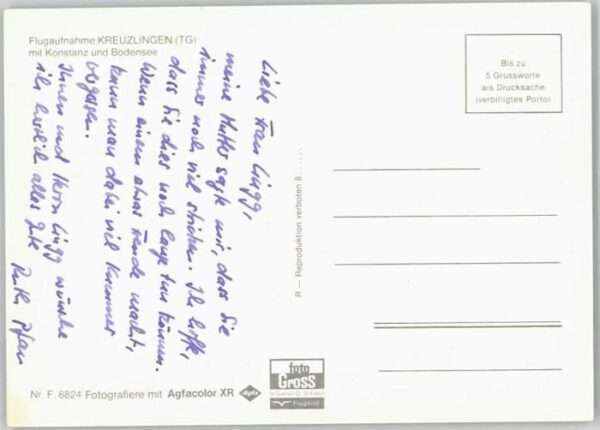 Flugaufnahme KREUZLINGEN (TG)
mit Konstanz und Bodensee
Liebe Frau Lügg,
meine Mutter sagte mir, dass Sie
immer noch viel stricken. Ich hoffe,
dass Sie dies noch lange tun können.
Wenn einem etwas Freude macht,
kann man dabei viel Kummer
vergessen.
Ihnen und Herrn Lügg wünsche
ich herzlich alles Gute
Ruth
Bis zu
5 Grussworte
als Drucksache
(verbilligtes Porto)
R — Reproduktion verboten 8
Nr. F. 6824 Fotografiere mit Agfacolor XR
Agfa
foto
GROSS
Flugbild